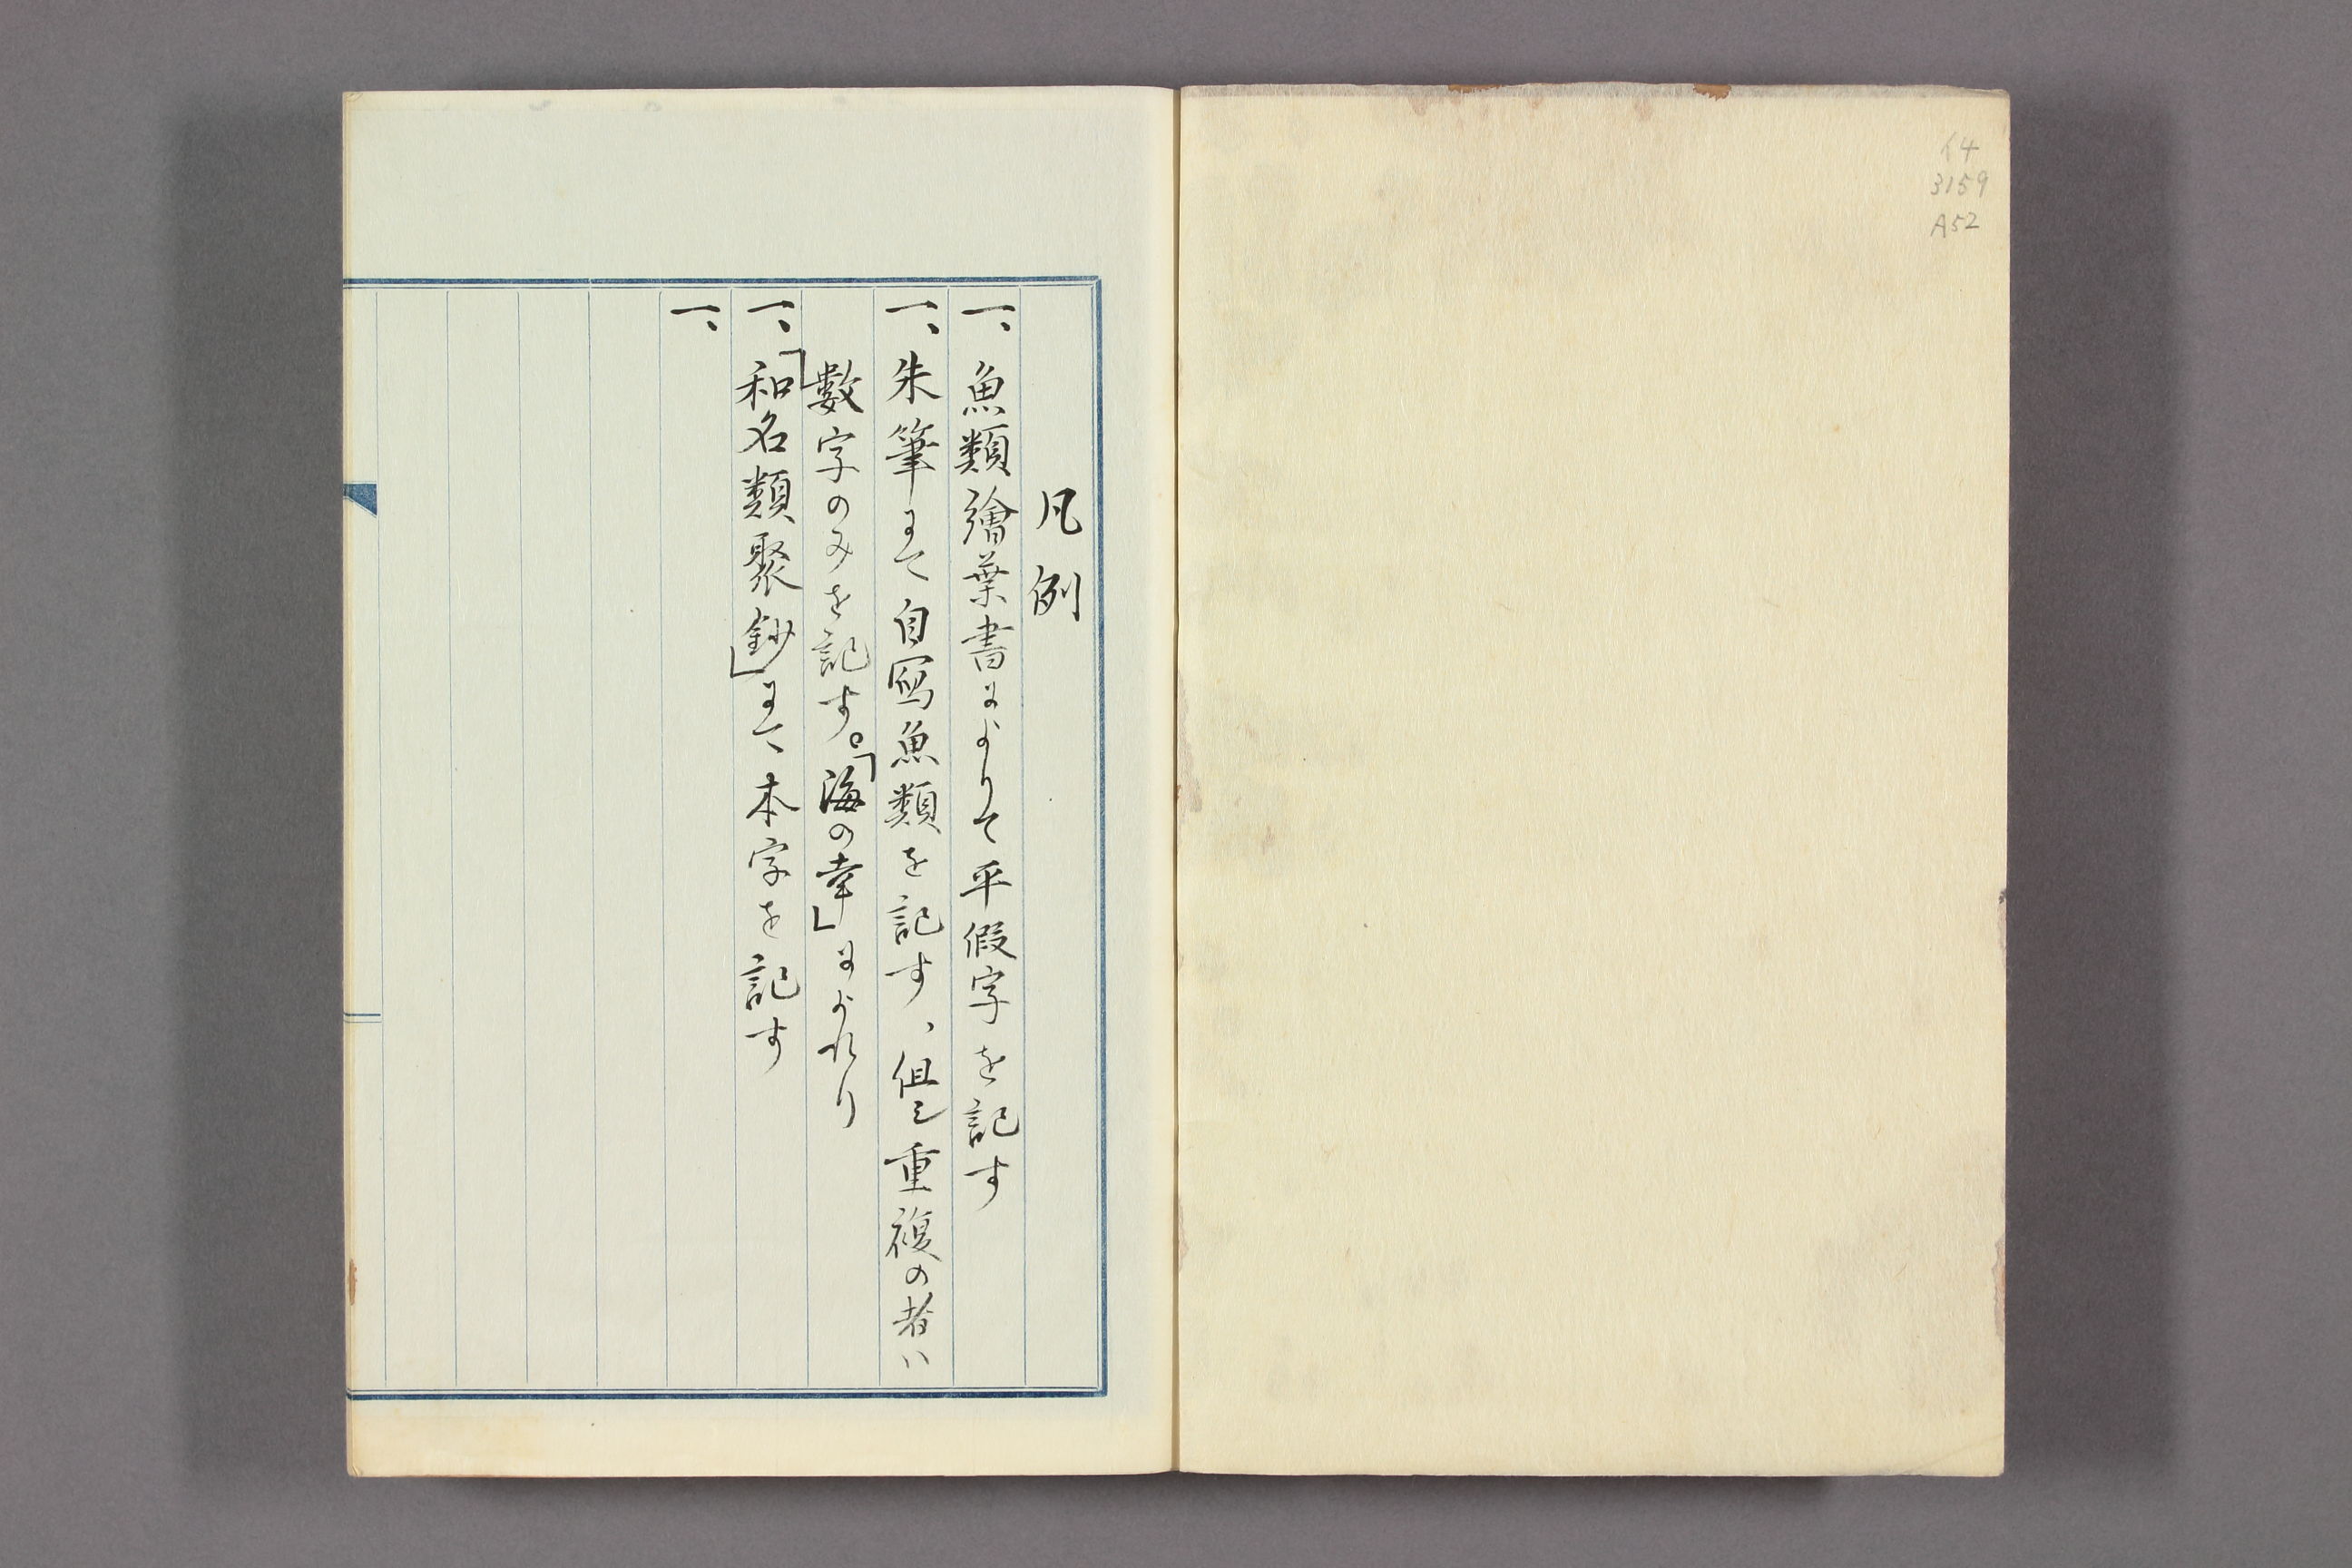 イ4
3159
A52
凡例
一、魚類繪葉書によりて平假字を記す
一、朱筆にて自冩魚類を記す、但し重複の者ハ
數字のみを記す。「海の幸」によれり
一、「和名類聚鈔」にて本字を記す
一、